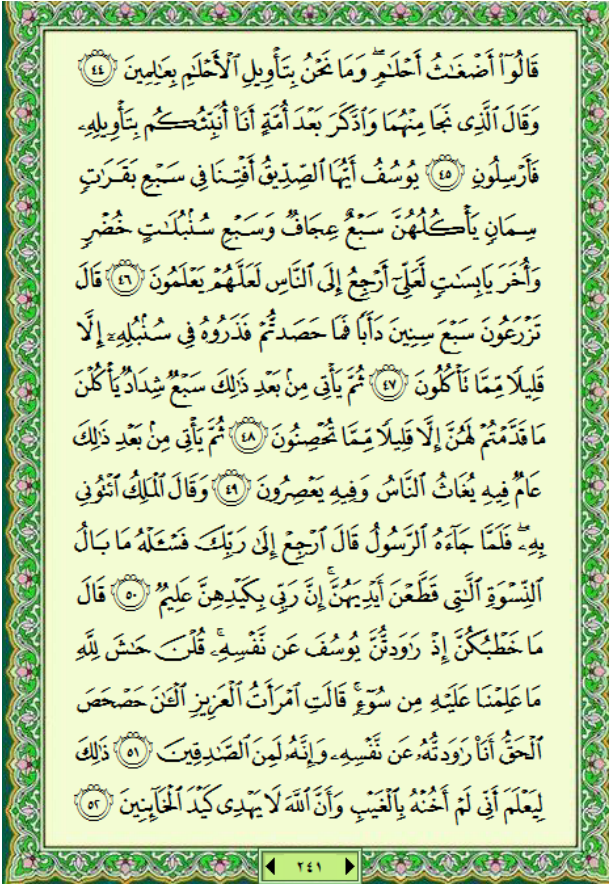 قَالُوٓا۟ أَضْغَـٰثُ أَحْلَـٰمٍۢ ۖ وَمَا نَحْنُ بِتَأْوِيلِ ٱلْأَحْلَـٰمِ بِعَـٰلِمِينَ ٤٤
وَقَالَ ٱلَّذِى نَجَا مِنْهُمَا وَٱدَّكَرَ بَعْدَ أُمَّةٍ أَنَا۠ أُنَبِّئُكُم بِتَأْوِيلِهِۦ
فَأَرْسِلُونِ ٤٥ يُوسُفُ أَيُّهَا ٱلصِّدِّيقُ أَفْتِنَا فِى سَبْعِ بَقَرَٰتٍۢ
سِمَانٍۢ يَأْكُلُهُنَّ سَبْعٌ عِجَافٌۭ وَسَبْعِ سُنۢبُلَـٰتٍ خُضْرٍۢ
وَأُخَرَ يَابِسَـٰتٍۢ لَّعَلِّىٓ أَرْجِعُ إِلَى ٱلنَّاسِ لَعَلَّهُمْ يَعْلَمُونَ ٤٦ قَالَ
تَزْرَعُونَ سَبْعَ سِنِينَ دَأَبًۭا فَمَا حَصَدتُّمْ فَذَرُوهُ فِى سُنۢبُلِهِۦٓ إِلَّا
قَلِيلًۭا مِّمَّا تَأْكُلُونَ ٤٧ ثُمَّ يَأْتِى مِنۢ بَعْدِ ذَٰلِكَ سَبْعٌۭ شِدَادٌۭ يَأْكُلْنَ
مَا قَدَّمْتُمْ لَهُنَّ إِلَّا قَلِيلًۭا مِّمَّا تُحْصِنُونَ ٤٨ ثُمَّ يَأْتِى مِنۢ بَعْدِ ذَٰلِكَ
عَامٌۭ فِيهِ يُغَاثُ ٱلنَّاسُ وَفِيهِ يَعْصِرُونَ ٤٩ وَقَالَ ٱلْمَلِكُ ٱئْتُونِى
بِهِۦ ۖ فَلَمَّا جَآءَهُ ٱلرَّسُولُ قَالَ ٱرْجِعْ إِلَىٰ رَبِّكَ فَسْـَٔلْهُ مَا بَالُ
ٱلنِّسْوَةِ ٱلَّـٰتِى قَطَّعْنَ أَيْدِيَهُنَّ ۚ إِنَّ رَبِّى بِكَيْدِهِنَّ عَلِيمٌۭ ٥٠ قَالَ
مَا خَطْبُكُنَّ إِذْ رَٰوَدتُّنَّ يُوسُفَ عَن نَّفْسِهِۦ ۚ قُلْنَ حَـٰشَ لِلَّهِ
مَا عَلِمْنَا عَلَيْهِ مِن سُوٓءٍۢ ۚ قَالَتِ ٱمْرَأَتُ ٱلْعَزِيزِ ٱلْـَٔـٰنَ حَصْحَصَ
ٱلْحَقُّ أَنَا۠ رَٰوَدتُّهُۥ عَن نَّفْسِهِۦ وَإِنَّهُۥ لَمِنَ ٱلصَّـٰدِقِينَ ٥١ ذَٰلِكَ
لِيَعْلَمَ أَنِّى لَمْ أَخُنْهُ بِٱلْغَيْبِ وَأَنَّ ٱللَّهَ لَا يَهْدِى كَيْدَ ٱلْخَآئِنِينَ ٥٢
٢٤١